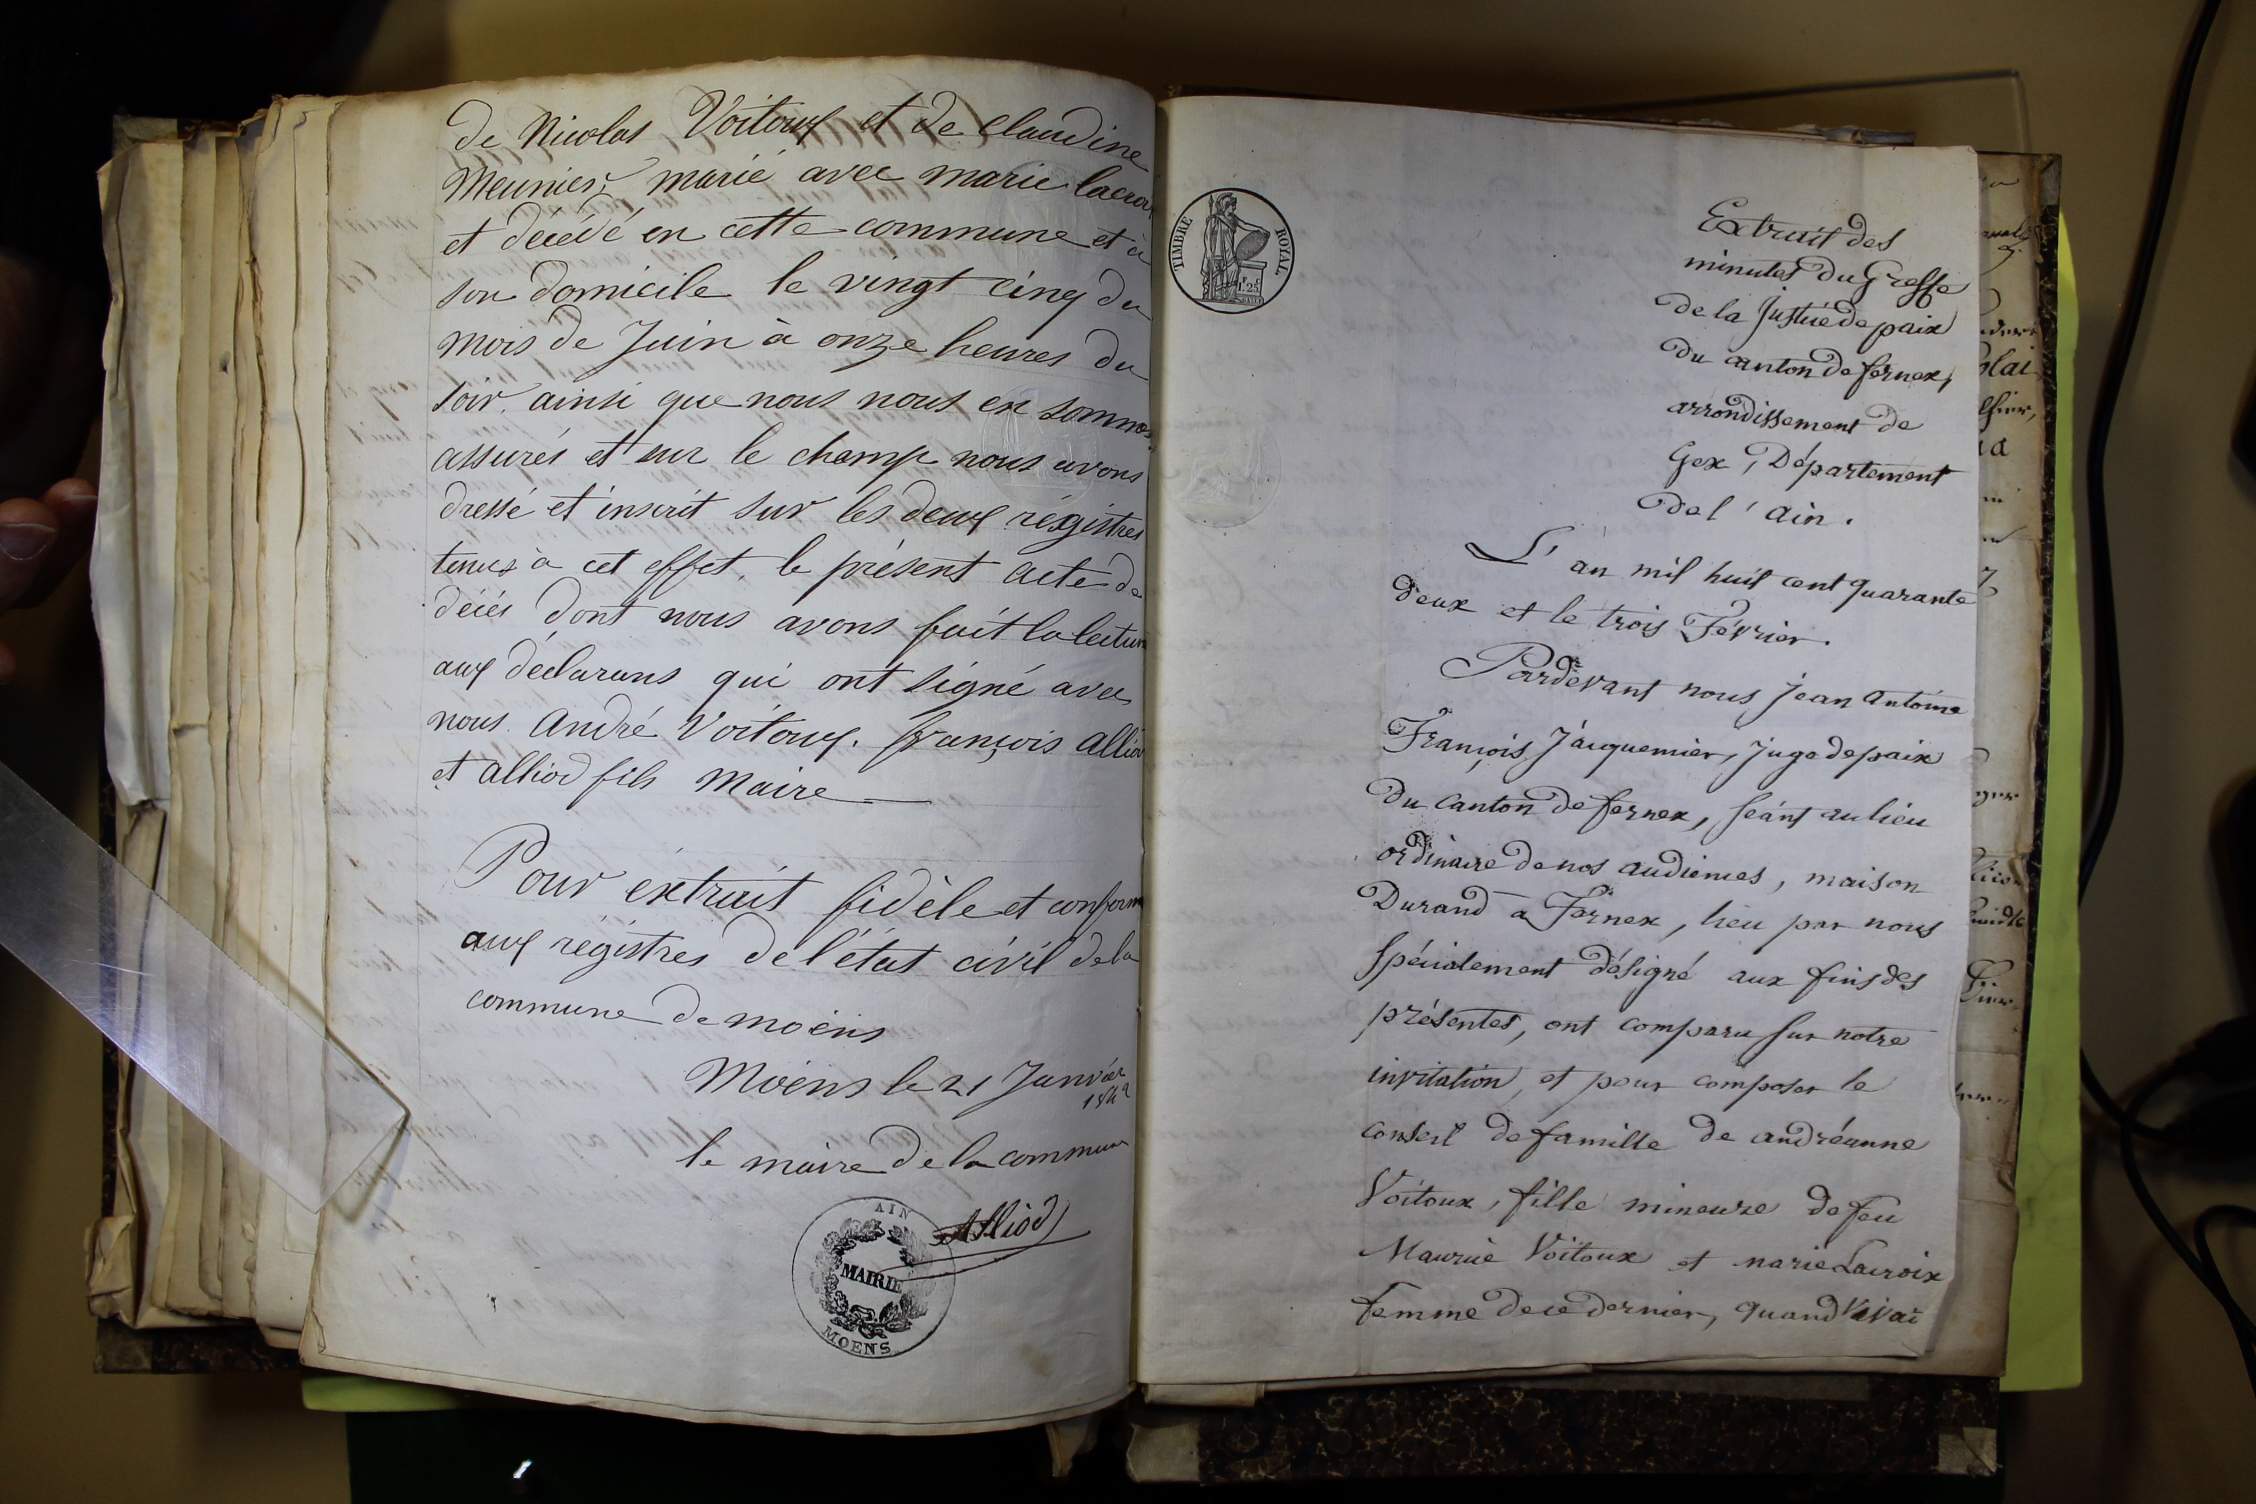 de Nicolas Voitoux et de Claudine
Meunier, marié avec marie lacroix
et décédé en cette commune et à
son domicile le vingt cinq du
mois de Juin à onze heures du
soir. ainsi que nous nous en sommes
assurés et sur le champ nous avons
dressé et inscrit sur les deux régistres
tenus à cet effet, le présent acte de
décés dont nous avons fait la lecture
aux déclarans qui ont signé avec
nous. André Voitoux. françois alliod
et alliod fils Maire
Pour éxtrait fidèle et conforme
aux régistres de l'état civil de la
commune de moëns
Moëns le 21 Janvier
1842
le maire de la commune
Alliod
AIN
MAIRIE
MOENS
TIMBRE ROYAL
1F. 25C.
Extrait des
minutes du Greffe
de la Justice de paix
du canton de fernex,
arrondissement de
Gex, Département
de l'ain.
L'an mil huit cent quarante
deux et le trois Février.
Pardevant nous Jean antoine
François Jacquemier, Juge de paix
du canton de fernex, séant au lieu
ordinaire de nos audiences, maison
Durand à Fernex, lieu par nous
spécialement désigné aux fins des
présentes, ont comparu sur notre
invitation, et pour composer le
conseil de famille de andréanne
Voitoux, fille mineure de feu
Maurice Voitoux et marie Lacroix
femme de ce dernier, quand vivai